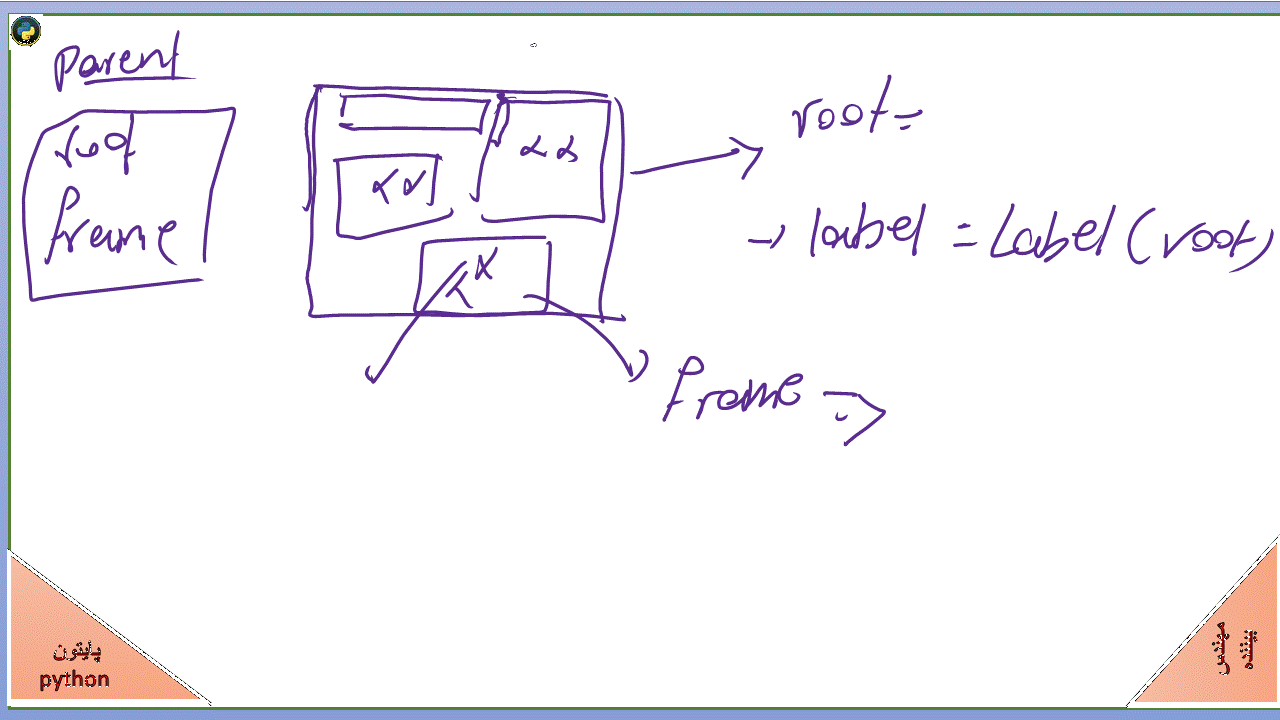 Parent
root
frame
αα
αα
αα
root=
→ label = Label(root)
frame ⇒
پایتون
python